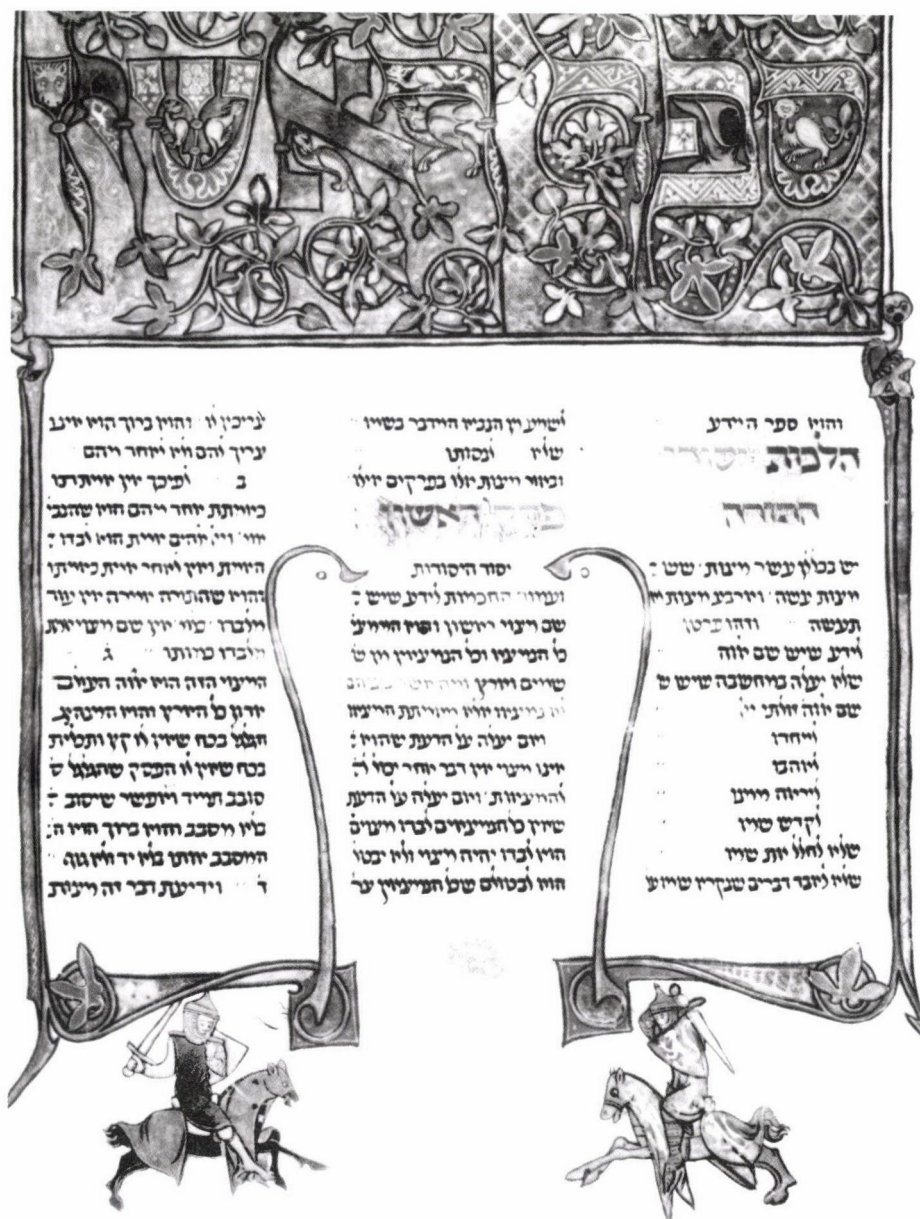 ספר ראשון
והוא ספר המדע
הלכות יסודי
התורה
יש בכללן עשר מצות שש
מצות עשה וארבע מצות לא
תעשה וזהו פרטן
לידע שיש שם אלוה
שלא יעלה במחשבה שיש ש
שם אלוה זולתי ייי
לייחדו
לאהבו
ליראה ממנו
לקדש שמו
שלא לחלל את שמו
שלא לאבד דברים שנקרא שמו ע
לשמוע מן הנביא המדבר בשמו
שלא לנסותו
וביאור מצות אלו בפרקים אילו
פרק ראשון
יסוד היסודות
ועמוד החכמות לידע שיש
שם מצוי ראשון והוא הממצי
כל הנמצא וכל הנמצאין מן ש
שמים וארץ ומה שביניהם
לא נמצאו אלא מאמתת המצאו
ואם יעלה על הדעת שהוא
אינו מצוי אין דבר אחר יכול ל
להמצאות ואם יעלה על הדעת
שאין כל הנמצאים לבדו מצוים
הוא לבדו יהיה מצוי ולא יבטל
הוא לבטולם שכל הנמצאין צר
צריכין לו והוא ברוך הוא אינו
צריך להם ולא לאחד מהם
ב לפיכך אין אמיתתו
כאמיתת אחד מהם הוא שהנבי
אומ׳ וייי אלהים אמת הוא לבדו ה
האמת ואין לאחר אמת כאמיתו
והוא שהתורה אומרת אין עוד
מלבדו אין שם מצוי אמת
מלבדו כמותו ג
המצוי הזה הוא אלוה העולם
אדון כל הארץ והוא המנהיג
הגלגל בכח שאין לו קץ ותכלית
בכח שאין לו הפסק שהגלגל ס
סובב תמיד ואי אפשר שיסוב ב
בלא מסבב והוא ברוך הוא ה
המסבב אותו בלא יד ולא גוף
ד וידיעת דבר זה מצות